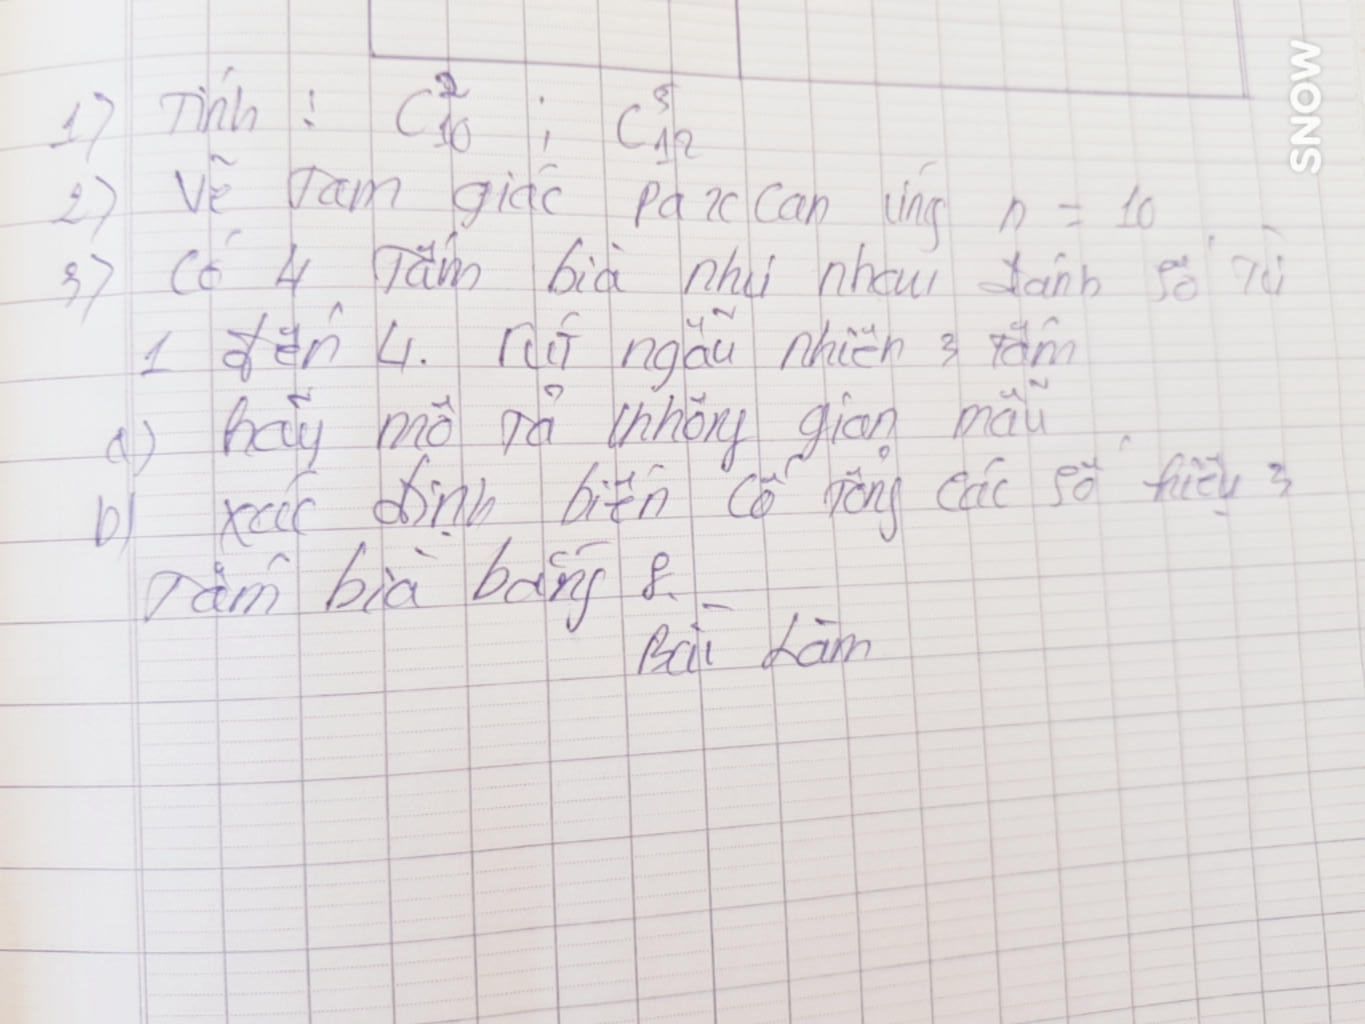 1) Tính : C²₁₀ ; C³₁₂
2) Vẽ Tam giác Paxcan ứng n = 10
3) Có 4 Tấm bìa như nhau đánh số từ
1 đến 4. rút ngẫu nhiên 3 tấm
a) hãy mô tả không gian mẫu
b) xác định biến cố Tổng các số hiệu 3
Tấm bìa bằng 8.
Bài Làm
SNOW